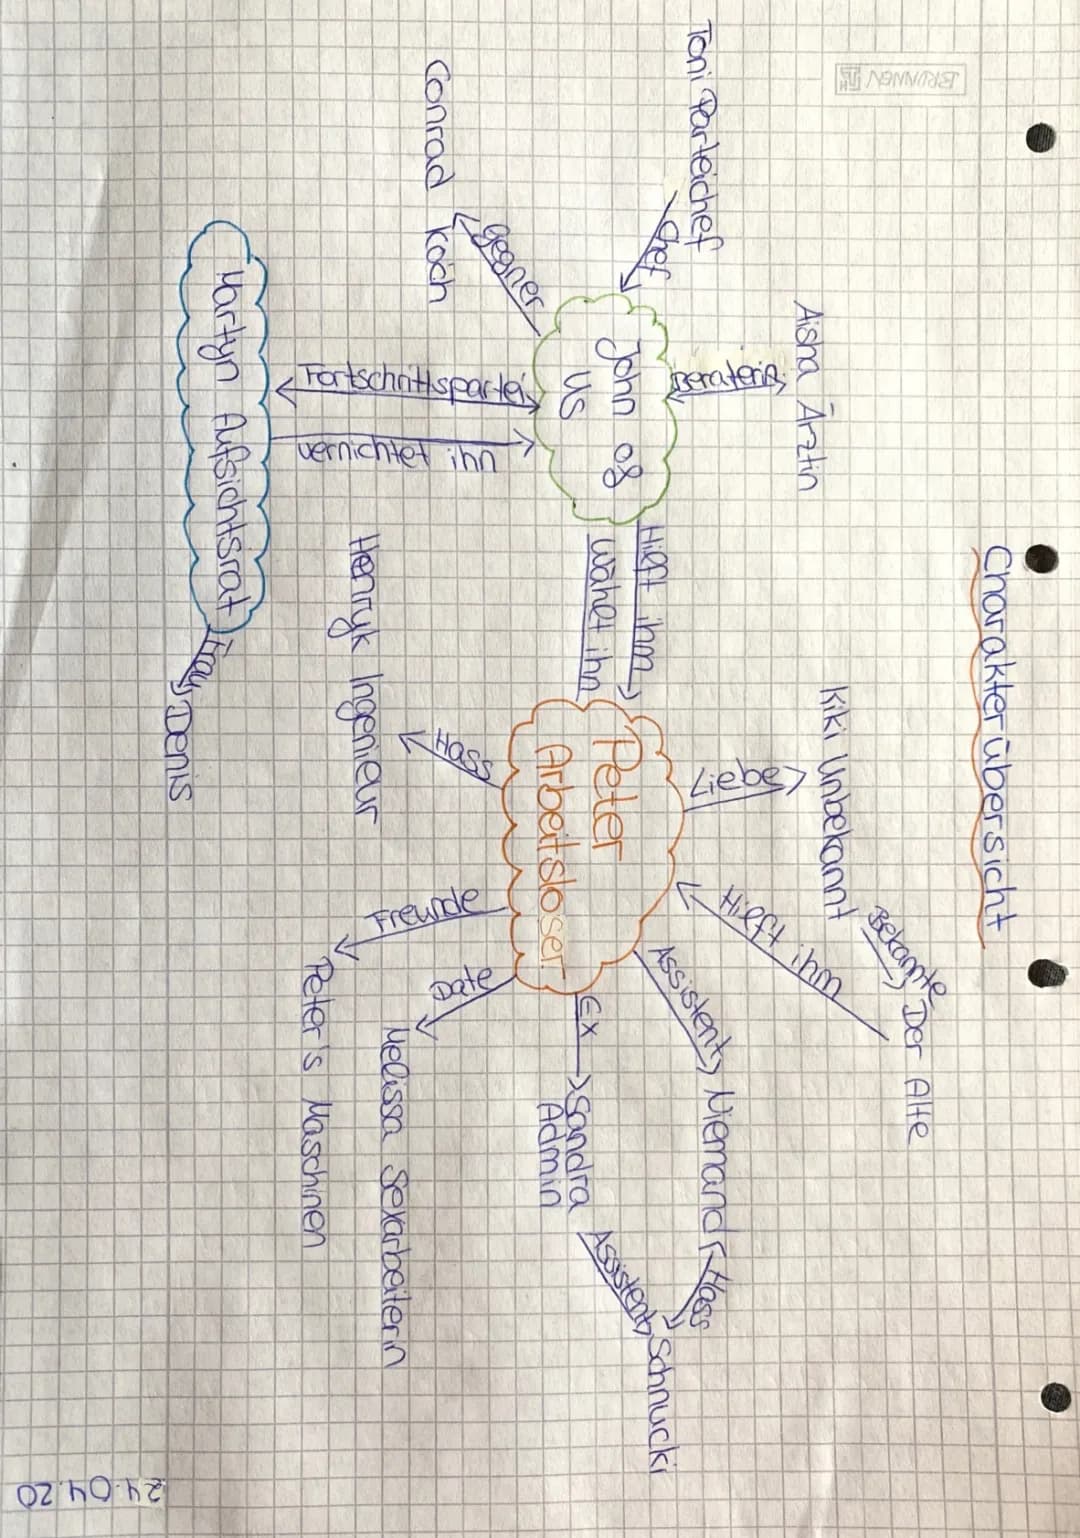 Charakterübersicht
BRUNNEN
Toni Parteichef
Chef
Aisha Ärztin
Beraterin
John of
us
gegner
Conrad Koch
Fortschrittspartei
vernichtet ihn
Martyn Aufsichtsrat
Frau
Denis
Hilft ihm
Wählt ihn
Peter
Arbeitsloser
Liebe
Kiki Unbekannt
Bekannte
Der Alte
Hilft ihm
Assistent
Niemand
Hass
Schnucki
Assistent
Ex
Sandra
Admin
Date
Melissa Sexarbeiterin
Freunde
Peter's Maschinen
Hass
Henryk Ingenieur
24.04.20